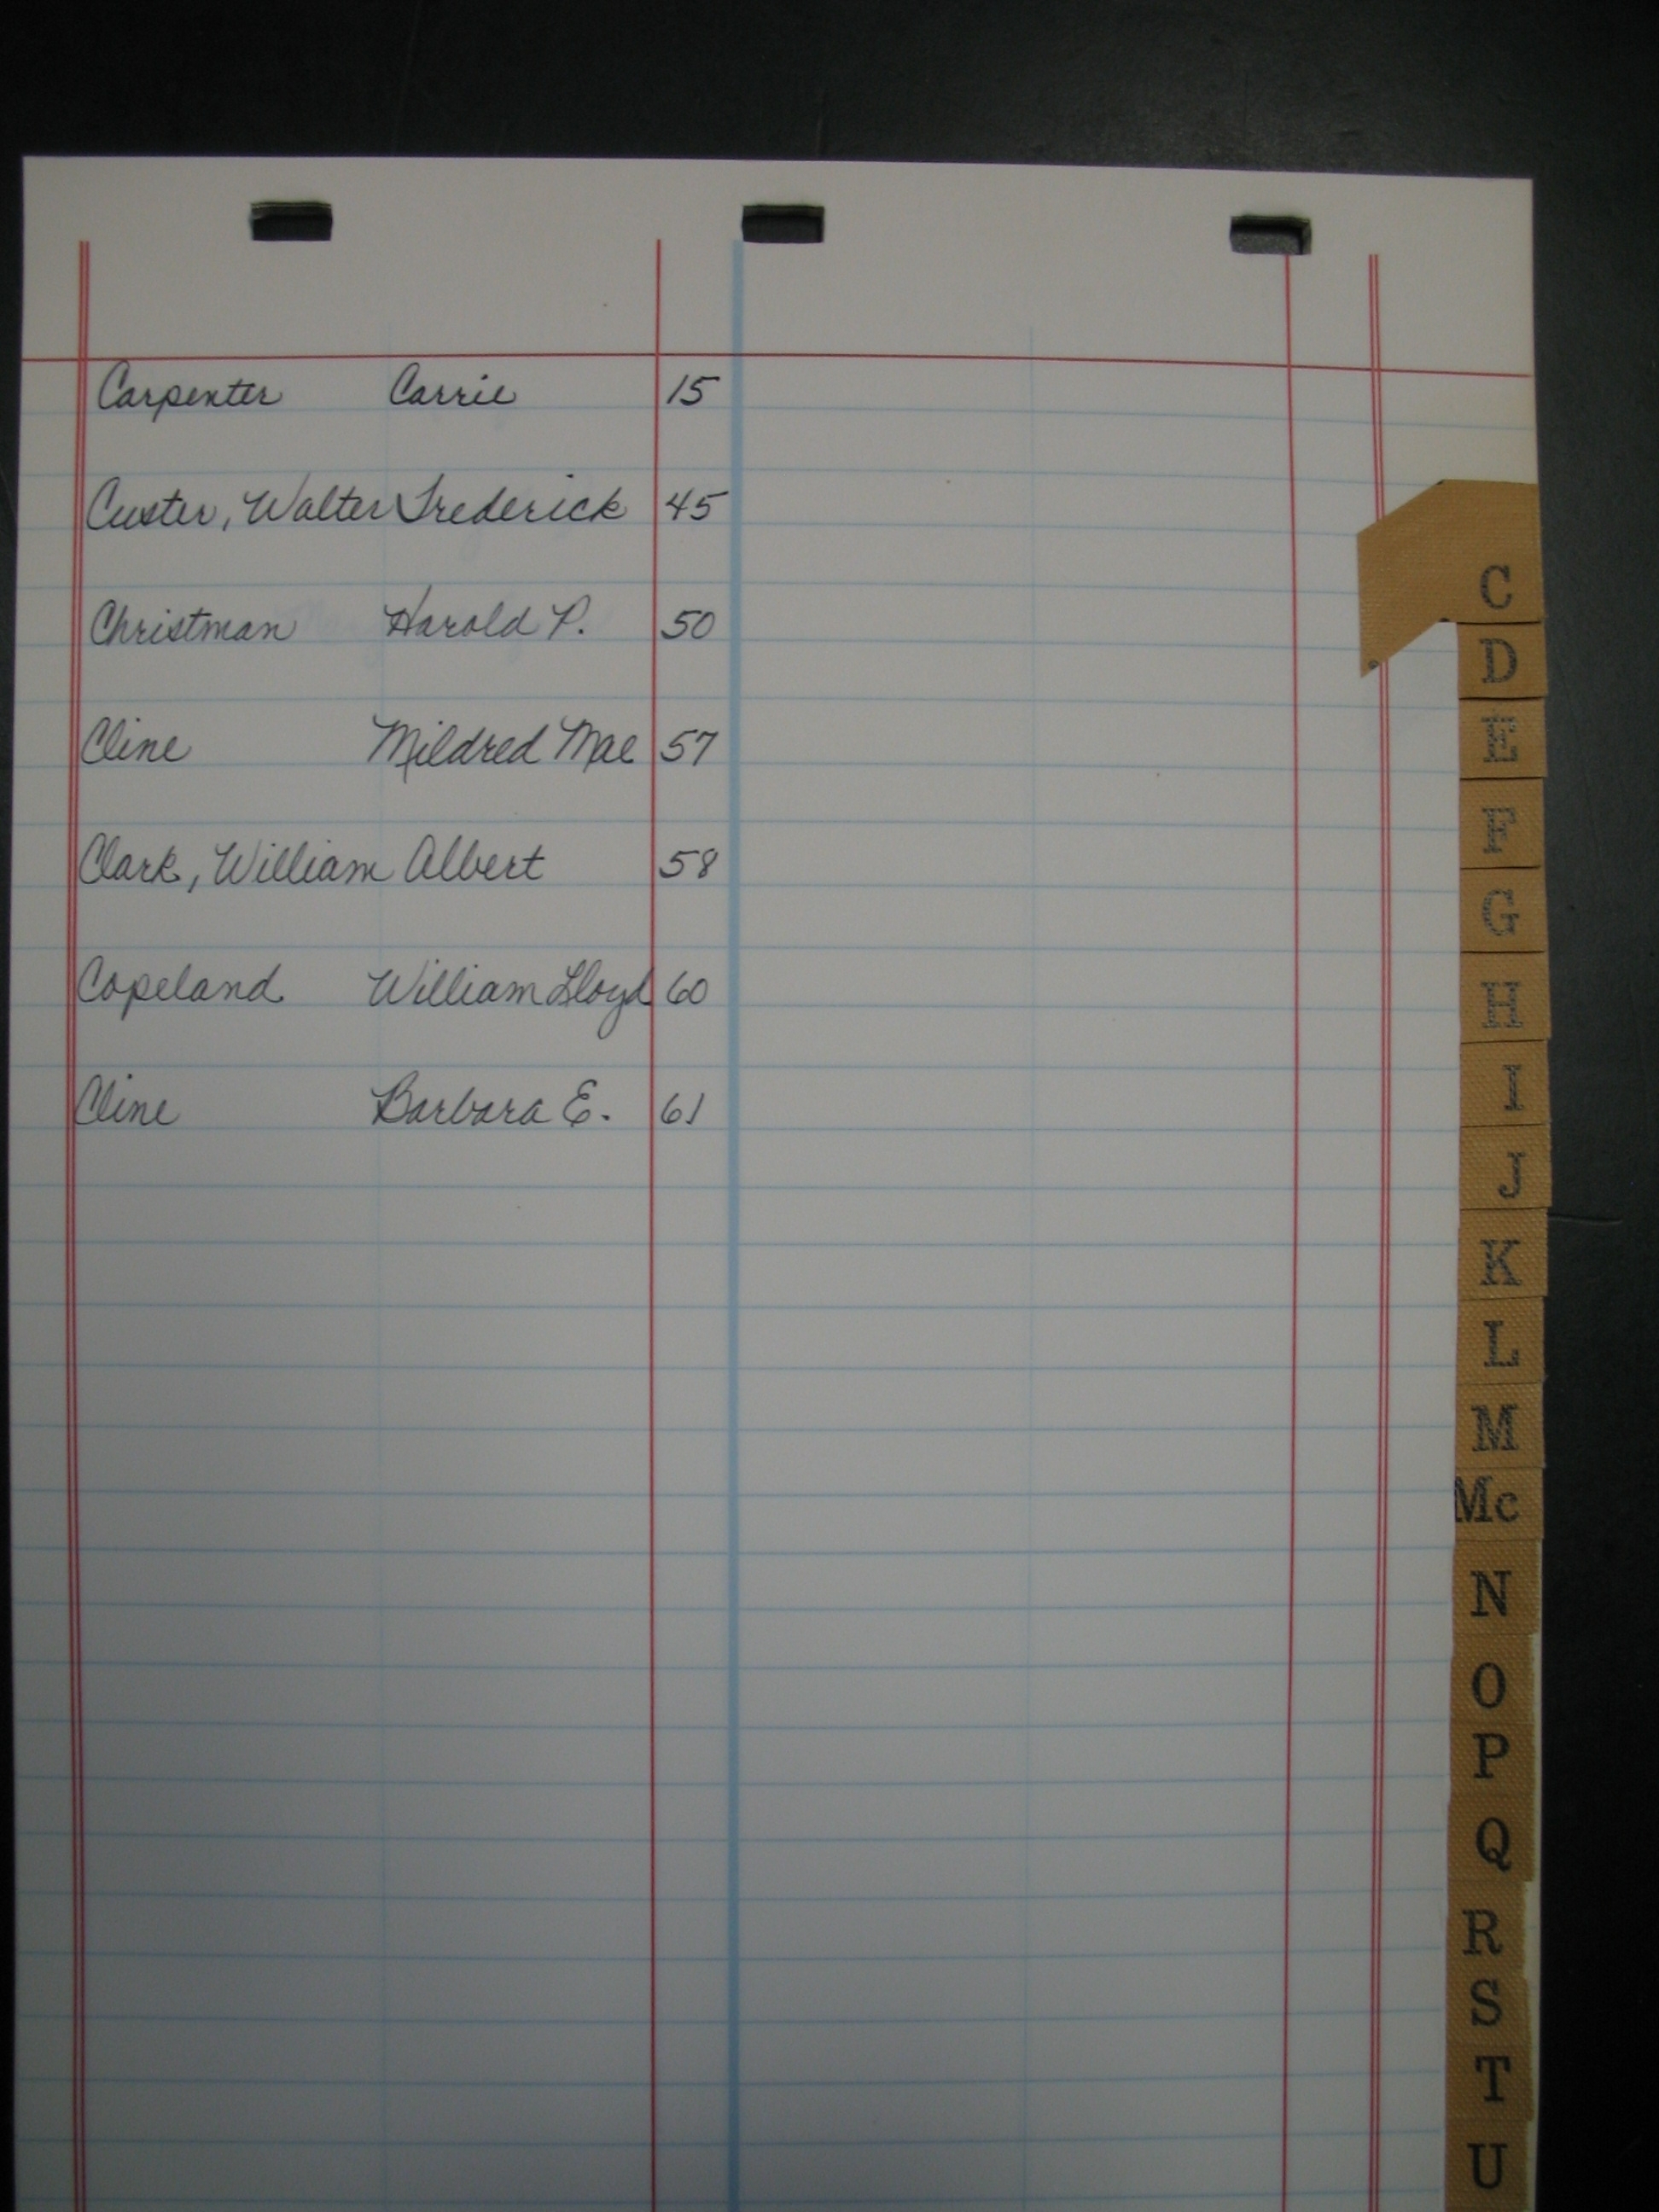 Carpenter Carrie 15
Custer, Walter Frederick 45
Christman Harold P. 50
Cline Mildred Mae 57
Clark, William Albert 58
Copeland William Lloyd 60
Cline Barbara E. 61
C
D
E
F
G
H
I
J
K
L
M
Mc
N
O
P
Q
R
S
T
U